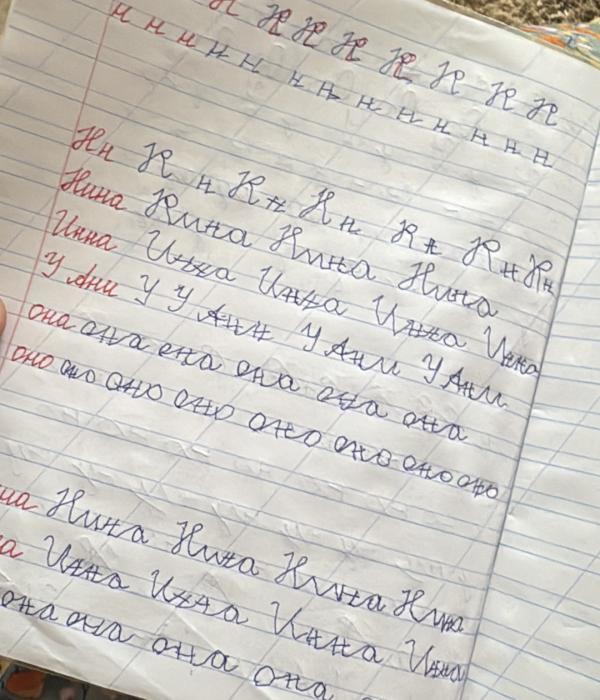 Н Н Н Н Н Н Н Н
н н н н н н н н н н н н н
Нн Н н Н н Н н Н н Н н Нн
Нина Нина Нина Нина
Инна Инна Инна Инна Инна
У Ани У У Ани У Ани У Ани
она она она она она она
оно оно оно оно оно оно оно оно
Нина Нина Нина Нина
Инна Инна Инна Инна
она она она она